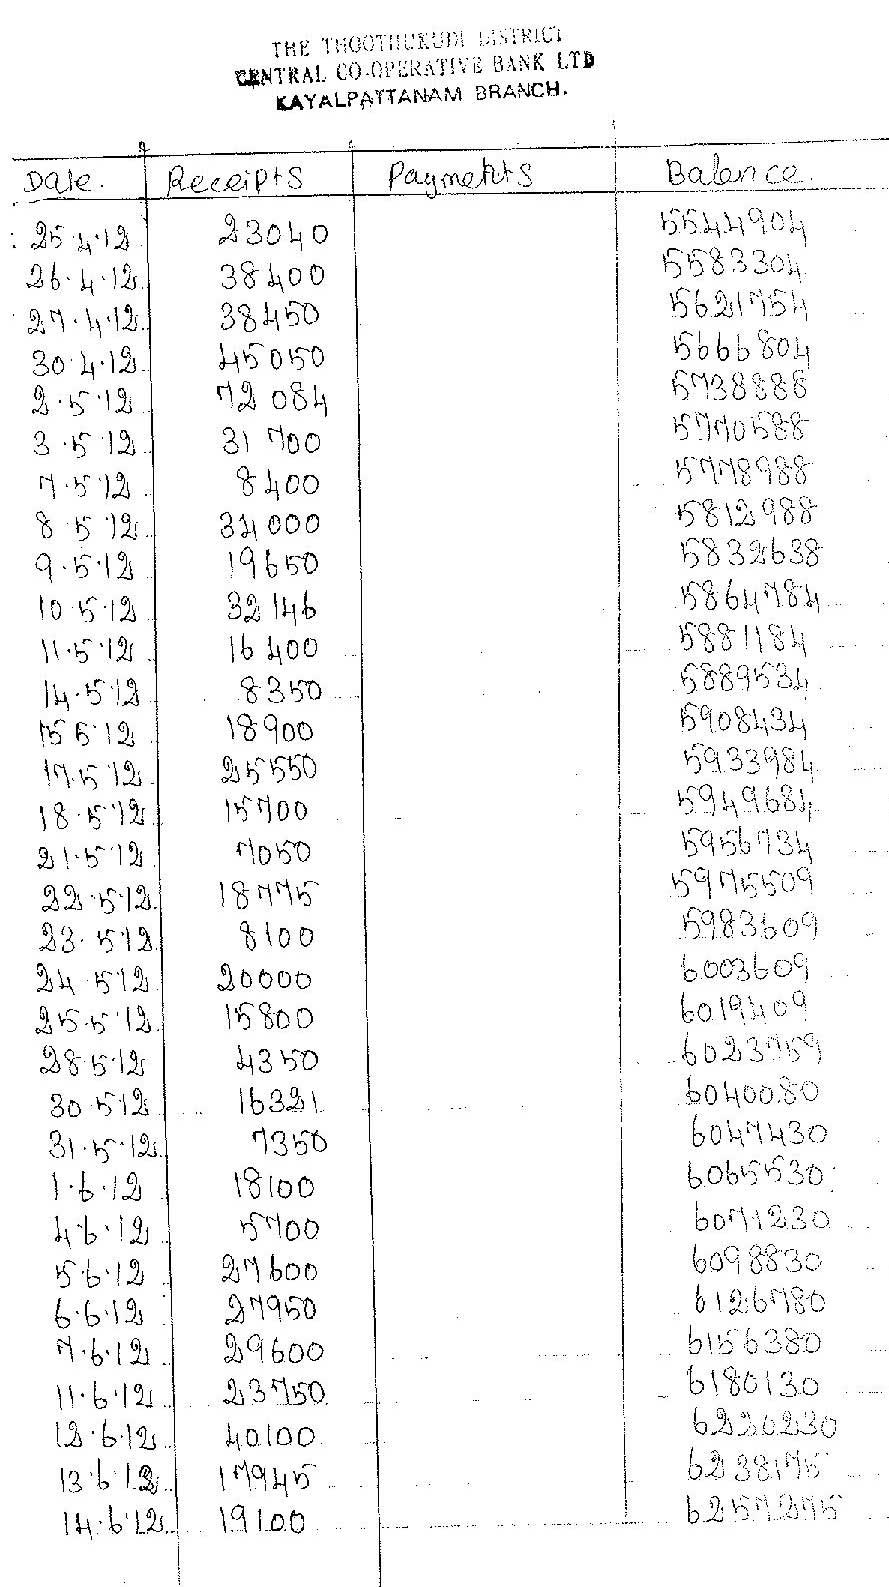 THE THOOTHUKUDI DISTRICT
CENTRAL CO-OPERATIVE BANK LTD
KAYALPATTANAM BRANCH.
Date. Receipts Payments Balence.
25.4.12 23040 5544904
26.4.12 38400 5583304
27.4.12 38450 5621754
30.4.12 45050 5666804
2.5.12 72084 5738888
3.5.12 31700 5770588
7.5.12 8400 5778988
8.5.12 34000 5812988
9.5.12 19650 5832638
10.5.12 32146 5864784
11.5.12 16400 5881184
14.5.12 8350 5889534
15.5.12 18900 5908434
17.5.12 25550 5933984
18.5.12 15700 5949684
21.5.12 7050 5956734
22.5.12 18775 5975509
23.5.12 8100 5983609
24.5.12 20000 6003609
25.5.12 15800 6019409
28.5.12 4350 6023759
30.5.12 16321 6040080
31.5.12 7350 6047430
1.6.12 18100 6065530
4.6.12 5700 6071230
5.6.12 27600 6098830
6.6.12 27950 6126780
7.6.12 29600 6156380
11.6.12 23750 6180130
12.6.12 40100 6220230
13.6.12 17945 6238175
14.6.12 19100 6257275